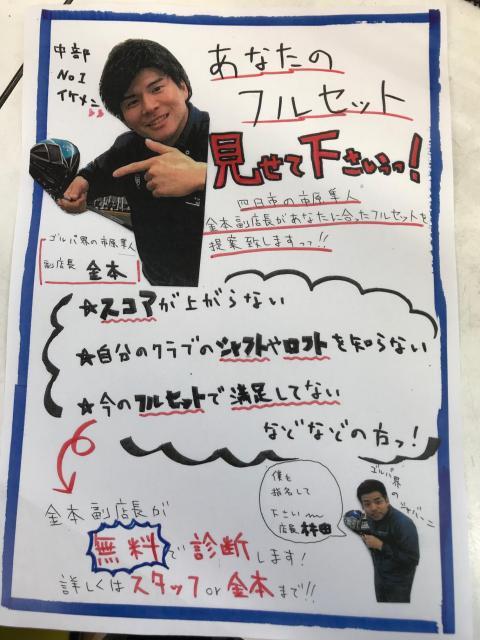 中部
No1
イケメン
あなたの
フルセット
見せて下さいっっ!
四日市の市原隼人
金本副店長があなたに合ったフルセットを
提案致しますっっ!!
ゴルパ界の市原隼人
副店長 金本
★スコアが上がらない
★自分のクラブのシャフトやロフトを知らない
★今のフルセットで満足してない
などなどの方っ!
金本副店長が
無料で診断します!
詳しくはスタッフor金本まで!!
僕も
指名して
下さい
店長 林田
ゴルパ界の